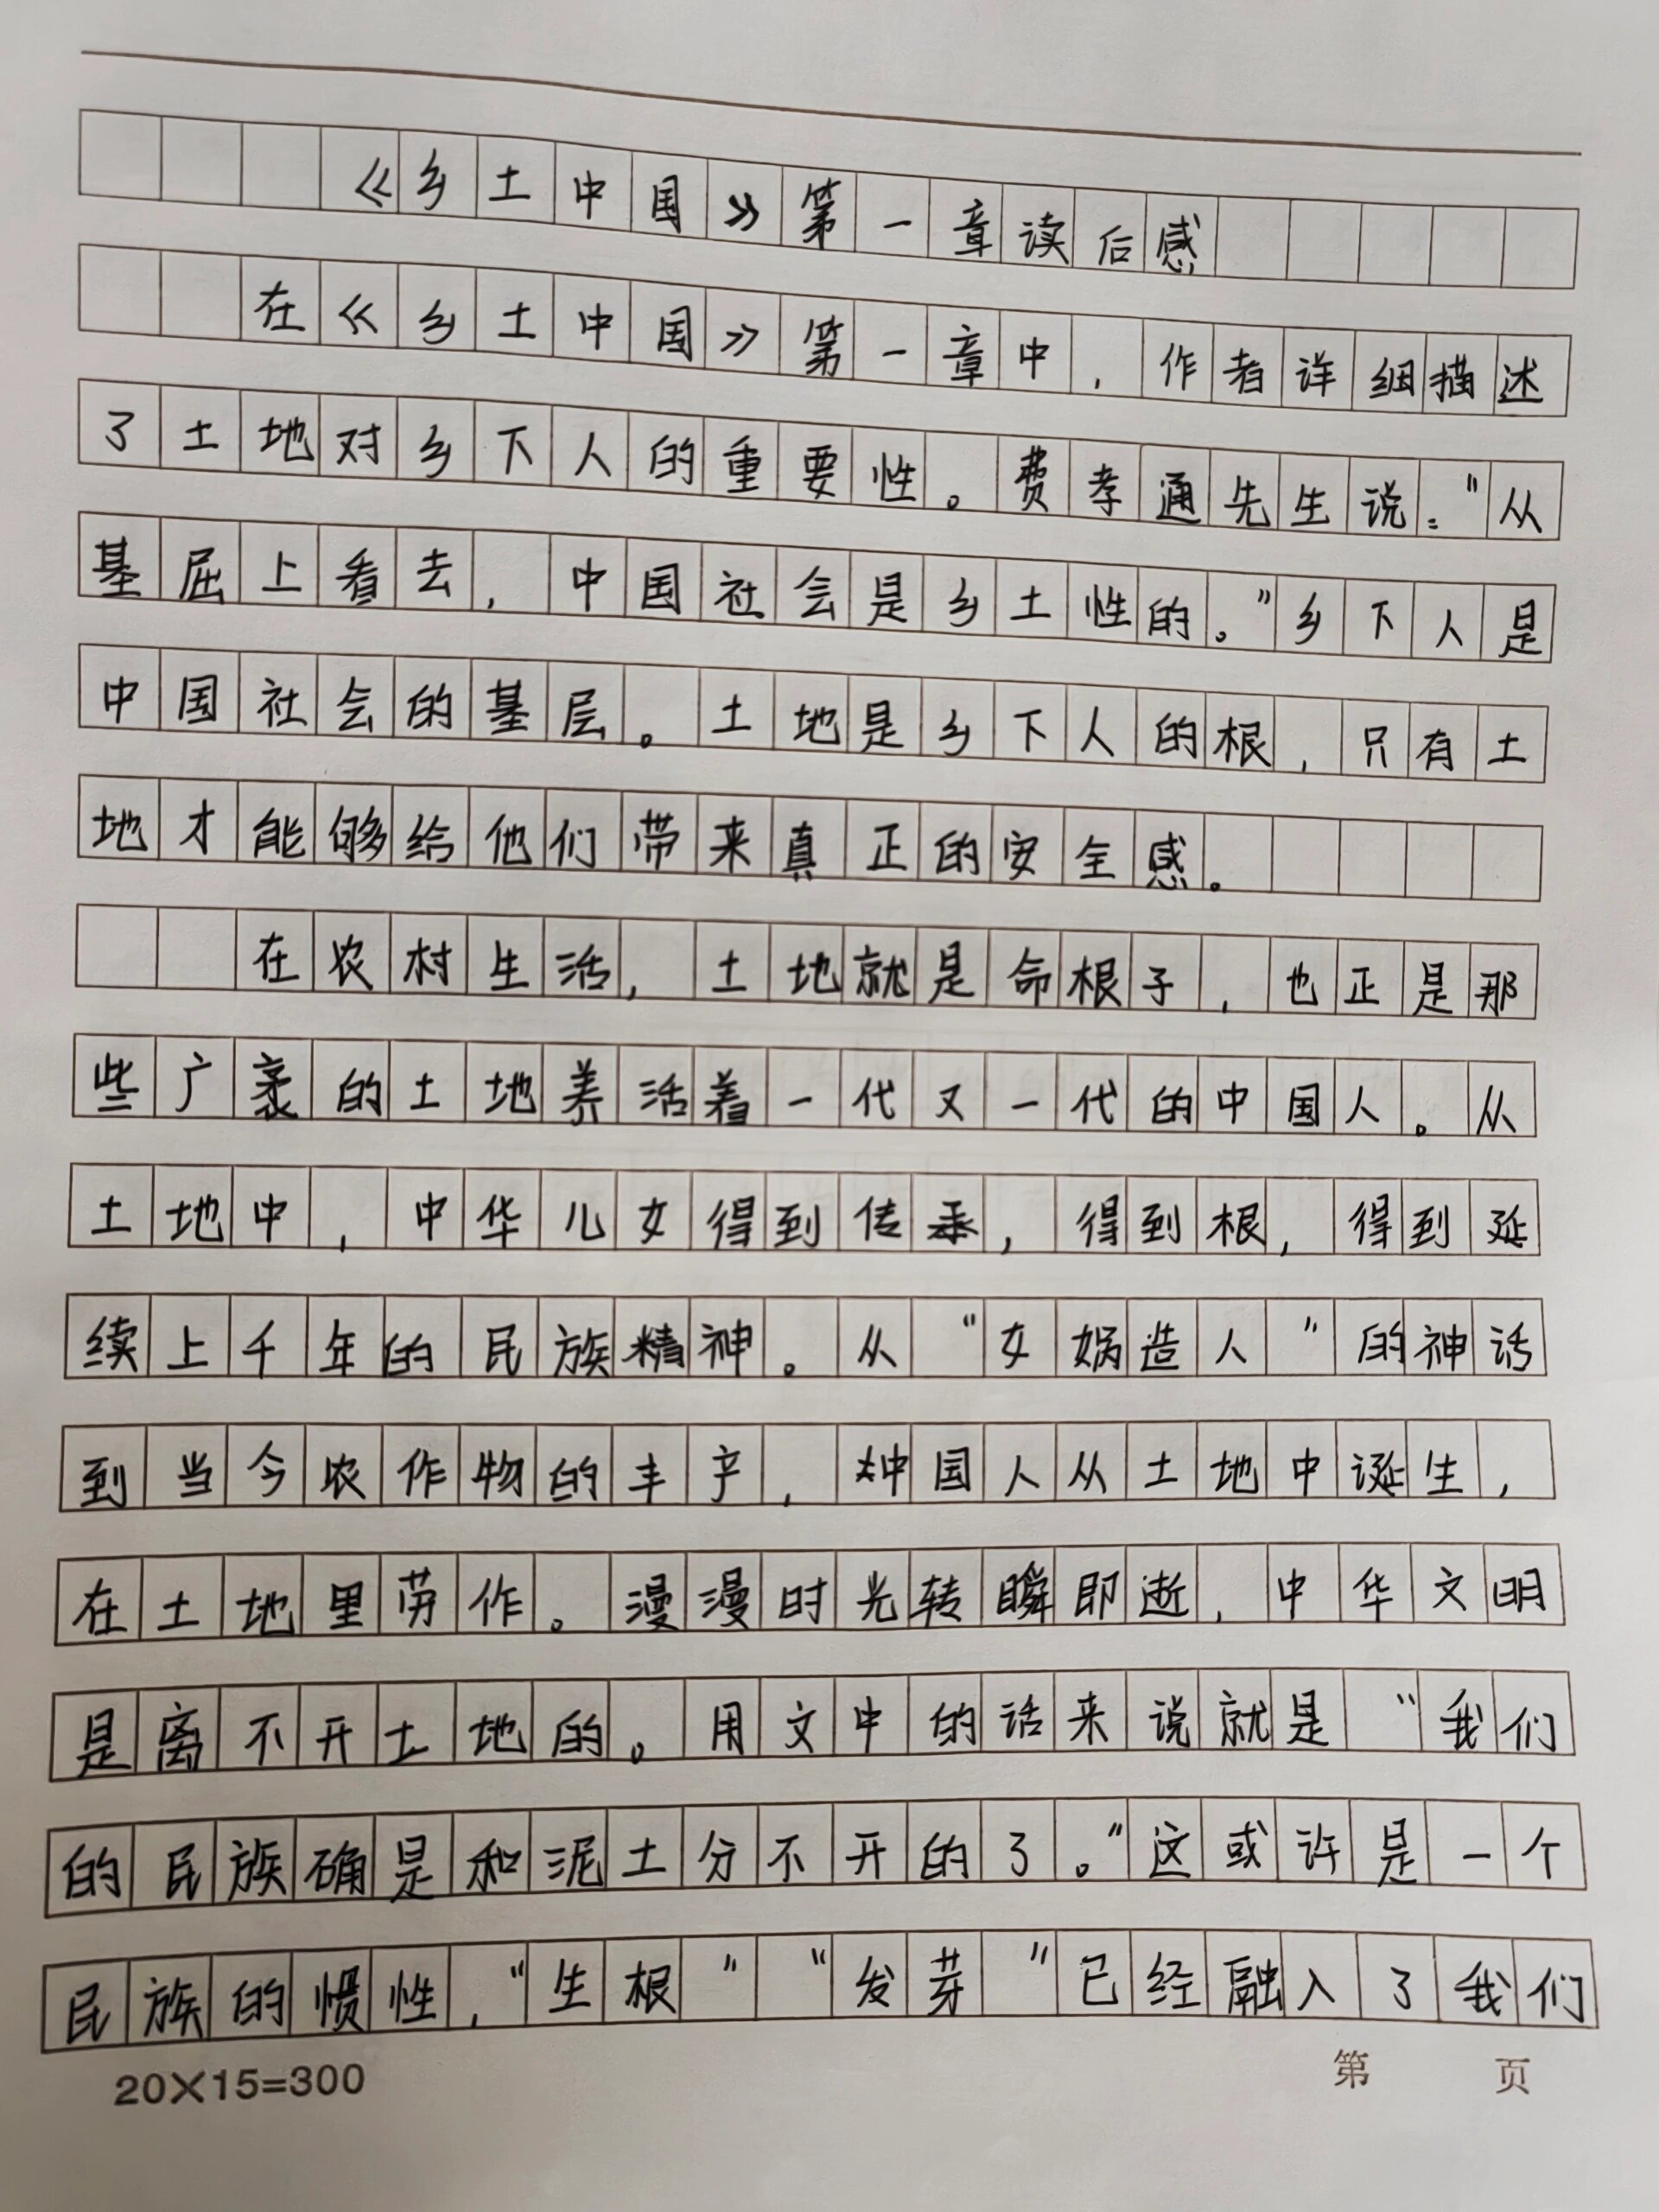 《乡土中国》第一章读后感
在《乡土中国》第一章中，作者详细描述
了土地对乡下人的重要性。费孝通先生说：“从
基层上看去，中国社会是乡土性的。”乡下人是
中国社会的基层。土地是乡下人的根，只有土
地才能够给他们带来真正的安全感。
在农村生活，土地就是命根子，也正是那
些广袤的土地养活着一代又一代的中国人。从
土地中，中华儿女得到传承，得到根，得到延
续上千年的民族精神。从“女娲造人”的神话
到当今农作物的丰产，中国人从土地中诞生，
在土地里劳作。漫漫时光转瞬即逝，中华文明
是离不开土地的。用文中的话来说就是“我们
的民族确是和泥土分不开的了。”这或许是一个
民族的惯性，“生根”“发芽”已经融入了我们
20×15=300
第 页